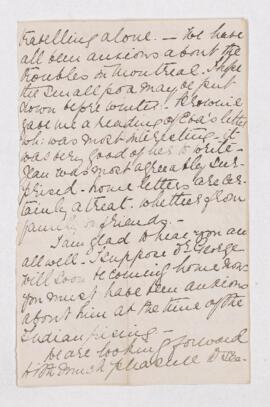 travelling alone. – We have
all been anxious about the
troubles in Montreal. I hope
the small pox may be put
down before winter. – Brownie
gave me a reading of Eva's letter
wh. was most interesting – it
was very good of her to write –
was most agreeably sur-
prised – home letters are cer-
tainly a treat – whether from
family or friends. –
I am glad to hear you are
all well. I suppose George
will soon be coming home now
you must have been anxious
about him at the time of the
Indian rising –
We are looking forward
with much pleasure to